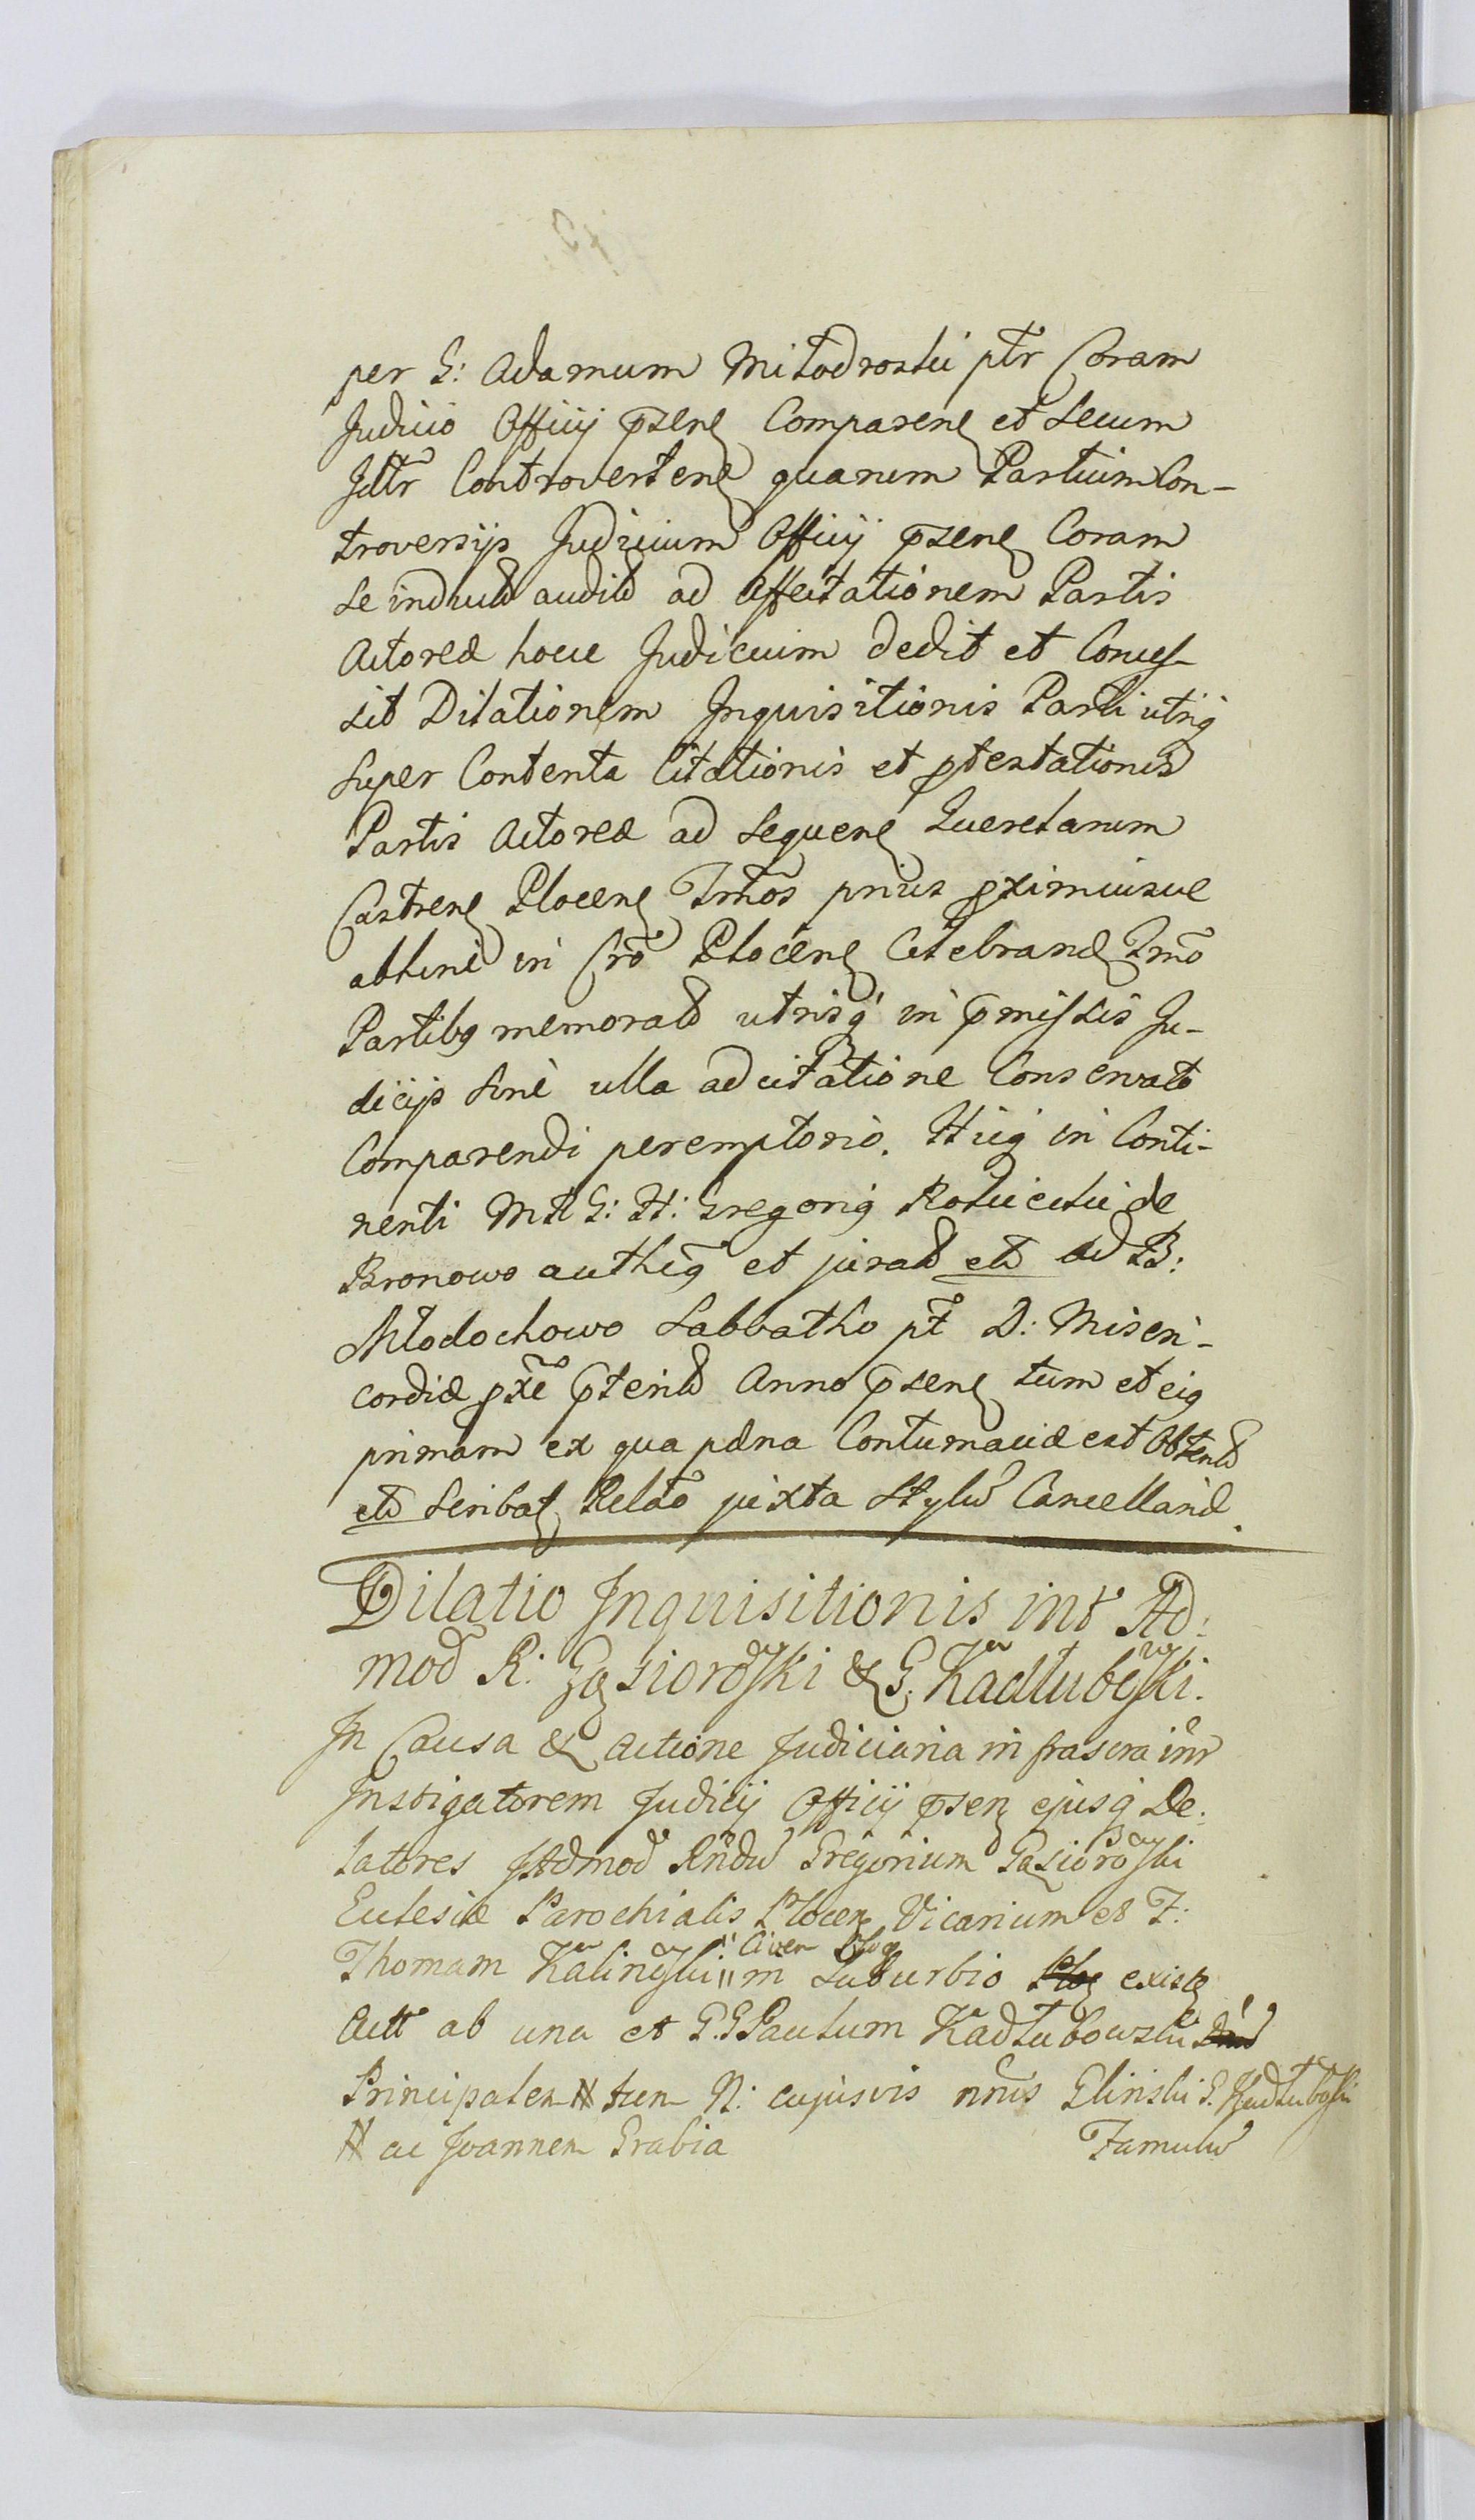 per G: Adamum Miłodroski ptr Coram
Judicio Officij psen Comparen et Secum
Jdtr Controverten quarum Partium Con-
troversijs Judicium Officij psen Coram
se induct audit ad Affectationem Partis
Actoreæ hocce Judicium dedit et Conces-
sit Dilationem Inquisitionis Parti utriq
super Contenta Citationis et ptestationis
Partis Actoreæ ad Sequen Querelarum
Castren Plocen Trmos prius pximiusve
abhinc in Cro Plocen Celebrand Trmo
Partibq memorat utrisq in pmissis Ju-
dicijs Sine ulla adcitatione Conservato
Comparendi peremptorio. Hujq in Conti-
nenti MR G: H: Gregoriq Rokicki de
Bronowo autheq et jurat etd ad B:
Młodochowo Sabbatho pt D: Miseri-
cordiæ pxe pterit Anno psen tum et eiq
primam ex qua pæna Contumaciæ est Obtent
etd Scribat Relato juxta Stylu Cancelland.
Dilatio Inquisitionis int Ad:
mod R: Gąsiorowski & G: Kadłubowski.
In Causa & Actione Judiciaria infrascra intr
Instigatorem Judicij Officij psen ejusq De:
latores Admod Rndu Gregorium Gąsiorowski
Eclesiæ Parochialis Plocen Vicarium et F:
Civen Ploc
Thomam Kalinowski in Suburbio Ploc existen
Act ab una et G. G Paulum Kadłubowski
Principalem # tum N: cujusvis nnis Glinski G. Kadłubowski
# ac Joannem Grabia Famulu